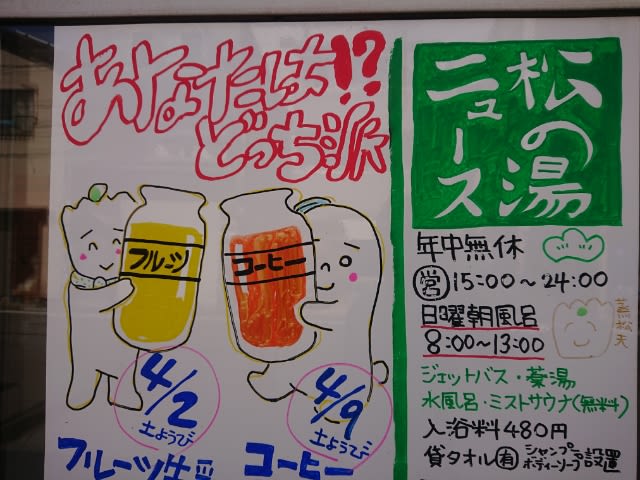 あなたは!?
どっち派
フルーツ
コーヒー
4/2
土ようび
4/9
土ようび
フルーツ牛
コーヒー
松の湯
ニュース
年中無休
営 15:00～24:00
日曜朝風呂
8:00～13:00
ジェットバス・薬湯
水風呂・ミストサウナ(無料)
入浴料480円
貸タオル有 シャンプー ボディーソープ設置